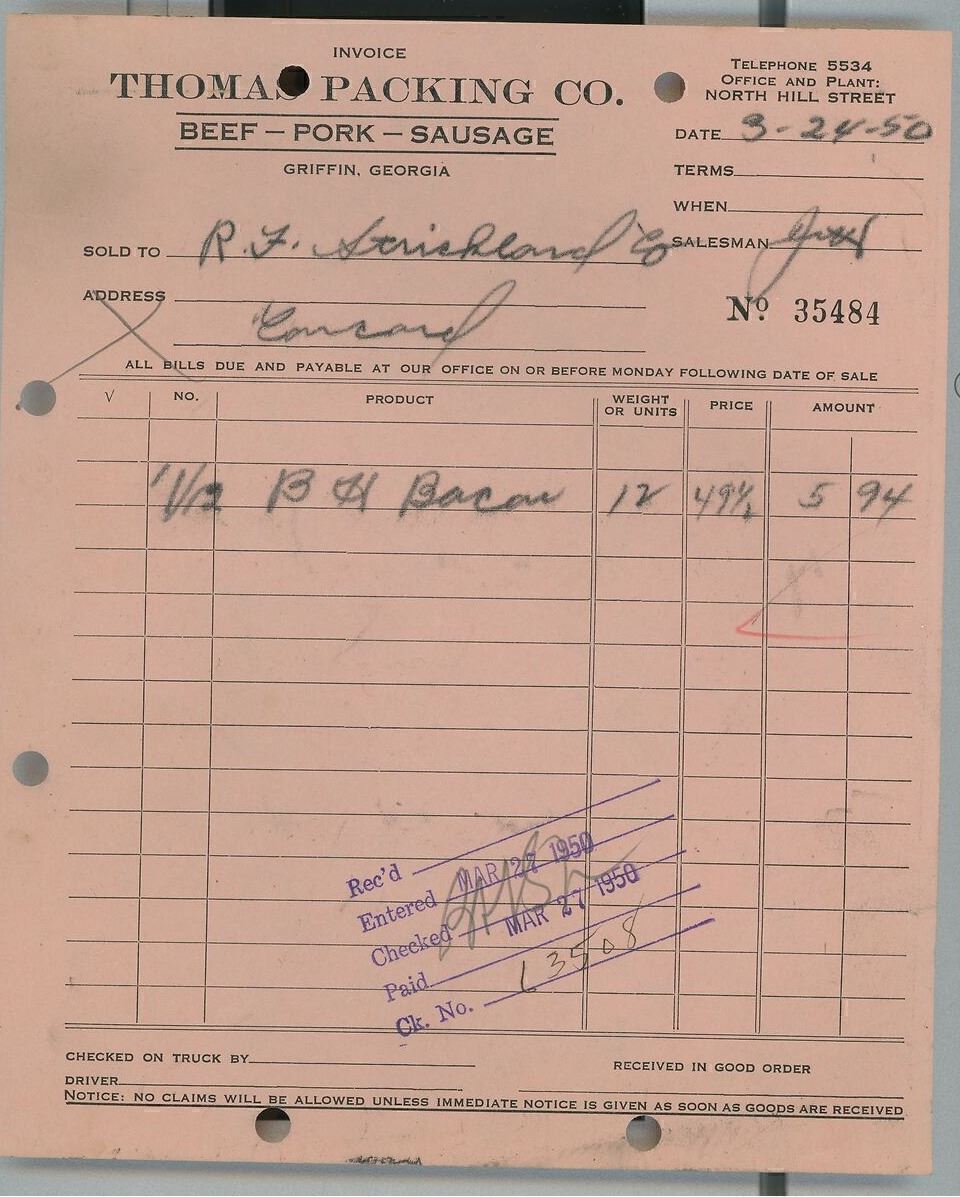 INVOICE
THOMAS PACKING CO.
BEEF — PORK — SAUSAGE
GRIFFIN, GEORGIA
TELEPHONE 5534
OFFICE AND PLANT:
NORTH HILL STREET
DATE 3-24-50
TERMS
WHEN
SALESMAN
SOLD TO R. F. Strickland Co
ADDRESS
Concord
No 35484
ALL BILLS DUE AND PAYABLE AT OUR OFFICE ON OR BEFORE MONDAY FOLLOWING DATE OF SALE
√ NO. PRODUCT WEIGHT OR UNITS PRICE AMOUNT
1/12 B H Bacon 12 49½ 5 94
Rec'd
Entered MAR 27 1950
Checked MAR 27 1950
Paid
Ck. No. 13508
CHECKED ON TRUCK BY
RECEIVED IN GOOD ORDER
DRIVER
NOTICE: NO CLAIMS WILL BE ALLOWED UNLESS IMMEDIATE NOTICE IS GIVEN AS SOON AS GOODS ARE RECEIVED